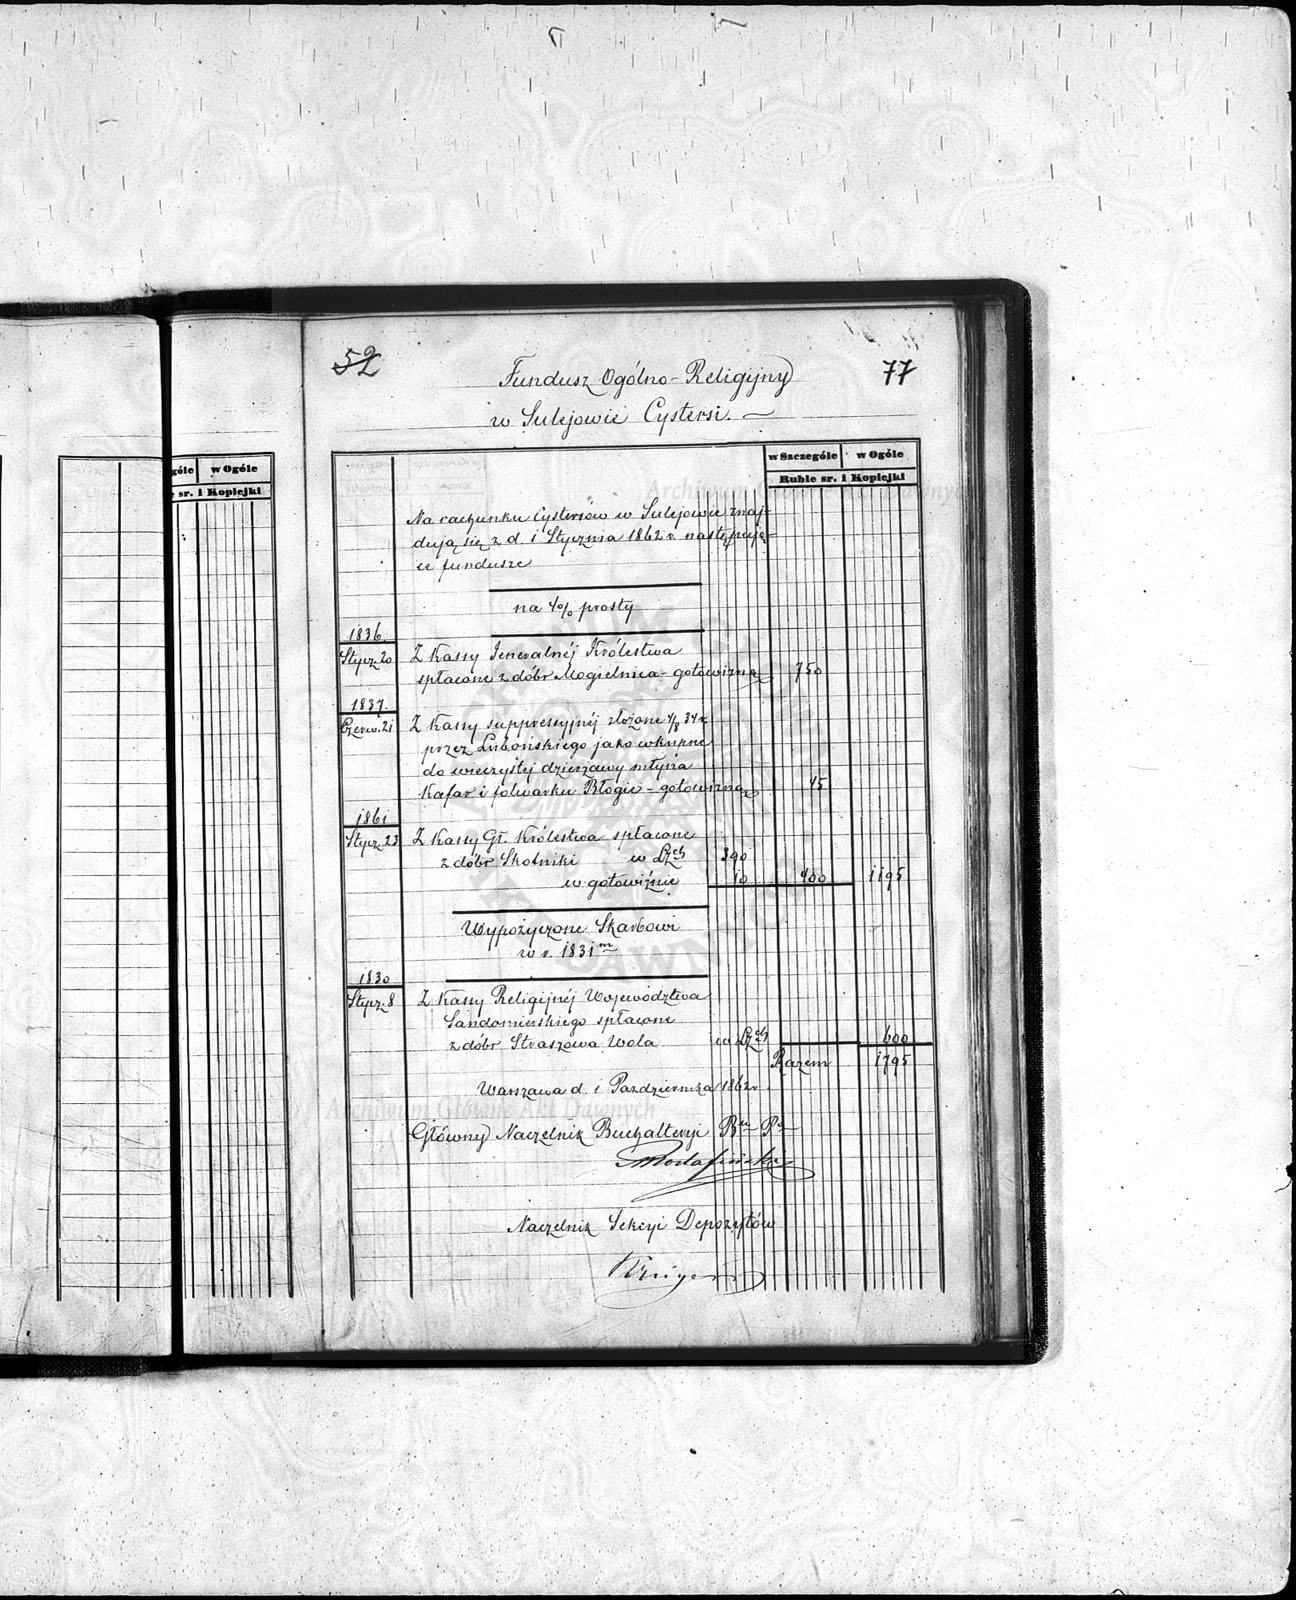 52
77
Fundusz Ogólno-Religijny
w Sulejowie Cystersi.
góle w Ogóle
sr. i Kopiejki
w Szczególe w Ogóle
Ruble sr. i Kopiejki
Na rachunku Cystersów w Sulejowie znaj-
dują się z d. 1 Stycznia 1862 r. następują-
ce fundusze
na 4% prosty
1836.
Stycz. 20 Z Kassy Jeneralnéj Królestwa
spłacone z dóbr Mogielnica - gotowizną 750
1837.
Czerw. 21 Z Kassy suppressyjnéj złożone 4/8 34 r.
przez Lubońskiego jako wkupne
do wieczystéj dzierżawy młyna
Kafar i folwarku Błogie - gotowizną 45
1861
Stycz. 23 Z Kassy Gł. Królestwa spłacone
z dóbr Skotniki w Lzch 390
w gotowiźnie 10 400 1195
Wypożyczone Skarbowi
w r. 1831m
1830
Stycz. 8 Z Kassy Religijnéj Województwa
Sandomierskiego spłacone
z dóbr Straszowa Wola w Lzch 600
Razem 1795
Warszawa d. 1 Października 1862 r.
Główny Naczelnik Buchalteryi
Naczelnik Sekcyi Depozytów
Archiwum Główne Akt Dawnych